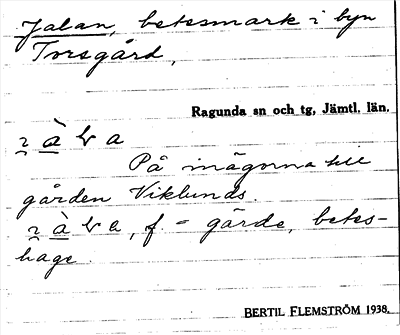 Jalan, betesmark i byn
Torsgård,
Ragunda sn och tg, Jämtl. län.
På inägorna till
gården Viklunds.
f. = gärde, betes-
hage.
BERTIL FLEMSTRÖM 1938.